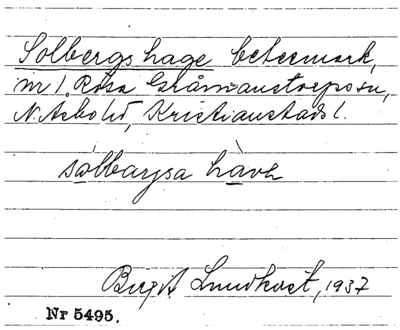 Solbergs hage betesmark,
m 1. Röra Grånanstorps sn,
N. Åsbo hd, Kristianstads l.
sólbarysa hàvɐ
Birgit Lundkvist, 1937
Nr 5495.